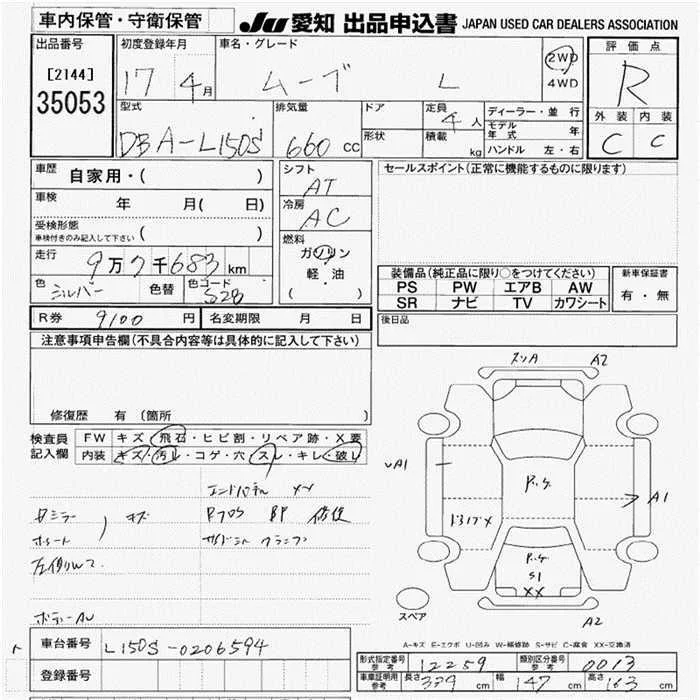 車内保管・守衛保管
JU 愛知 出品申込書 JAPAN USED CAR DEALERS ASSOCIATION
出品番号
[2144]
35053
初度登録年月
17 4月
車名・グレード
ムーブ L
2WD
4WD
評価点
R
外装 内装
C C
型式
DBA-L150S
排気量
660 cc
ドア
形状
定員
4人
積載
kg
ディーラー・並行
モデル年式 年
ハンドル 左・右
車歴
自家用・( )
車検
年 月( 日)
受検形態
車検付きのみ記入して下さい ( )
走行
9万7千683km
色
シルバー
色替
色コード
S28
シフト
AT
冷房
AC
燃料
ガソリン
軽・油
( )
セールスポイント(正常に機能するものに限ります)
装備品(純正品に限り○をつけてください)
PS PW エアB AW
SR ナビ TV カワシート
新車保証書
有・無
R券 9100 円 名変期限 月 日
後日品
注意事項申告欄(不具合内容等は具体的に記入して下さい)
修復歴 有(箇所 )
検査員記入欄
FW キズ・飛石・ヒビ割・リペア跡・X要
内装 キズ・汚レ・コゲ・穴・スレ・キレ・破レ
エンドパネル XX
キズ
ボデーAU
スソA A2
UA1
R.S.
A1
R.S.
S1
XX
スペア
A2
A-キズ E-エクボ U-凹み W-補修跡 S-サビ C-腐食 XX-交換済
車台番号 L150S-0206594
登録番号
形式指定番号参考 12259 類別区分番号参考 0013
車庫証明用参考 長さ 339 cm 幅 147 cm 高さ 163 cm